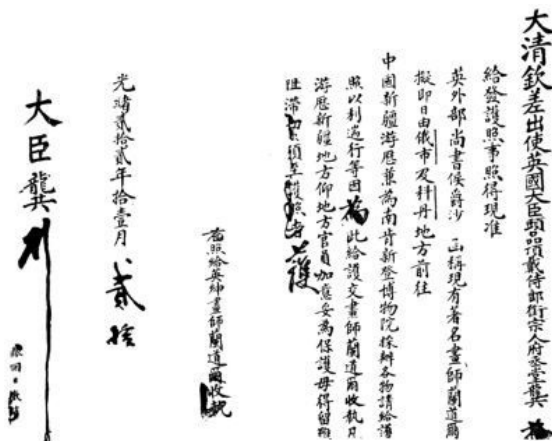 大清欽差出使英國大臣頭品頂戴侍郎銜宗人府丞堂龔 為
給發護照事照得現准
英外部尚書侯爵沙 函稱現有著名畫師蘭道爾
擬即日由俄市及科丹地方前往
中國新疆游歷兼為南肯新登博物院採辦各物請給護
照以利遄行等因為此給護交畫師蘭道爾收執凡
游歷新疆地方仰地方官員加意妥為保護毋得留難
阻滯須至護照者 護
右照給英紳畫師蘭道爾收執
光緒貳拾貳年拾壹月 貳拾
大臣龔